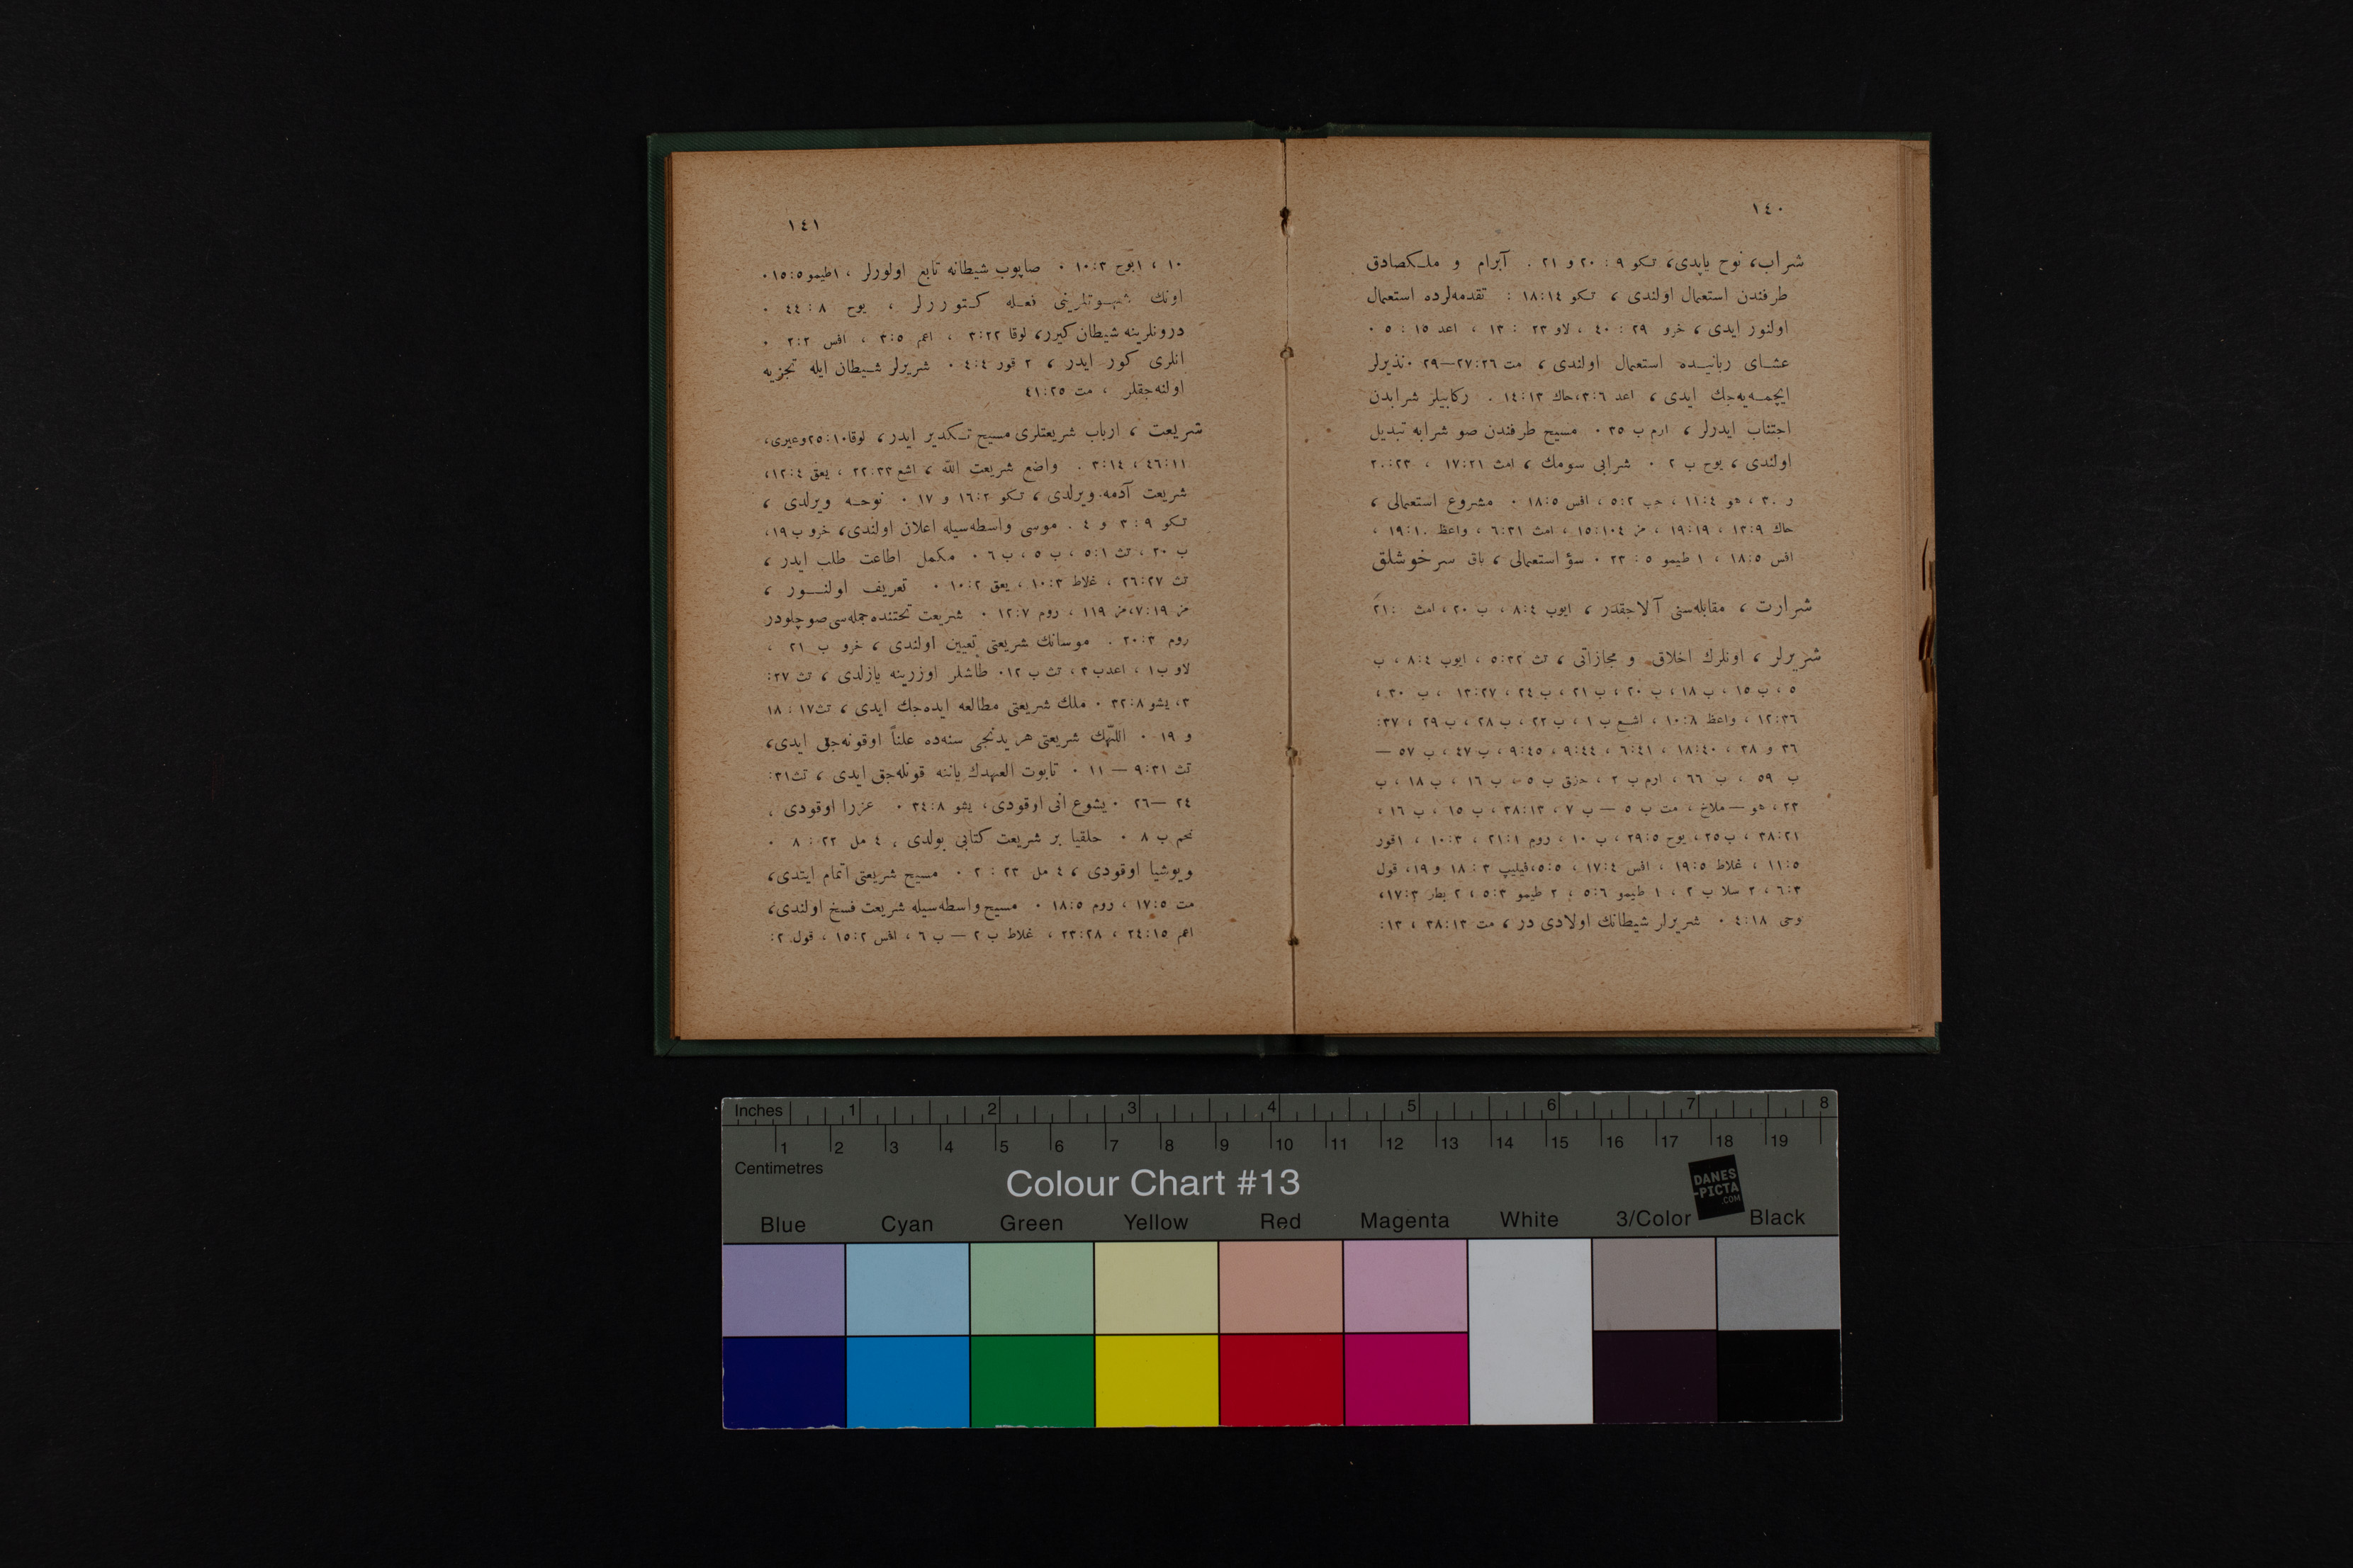 ١٤٠
شراب، نوح یاپدی، تکو ٩ : ٢٠ و ٢١ . آبرام و ملکصادق
طرفندن استعمال اولندی ، تکو ١٨:١٤ : تقدمه‌لرده استعمال
اولنور ایدی ، خرو ٢٩ : ٤٠ ، لاو ٢٣ : ١٣ ، اعد ١٥ : ٥ ٠
عشای ربانیده استعمال اولندی ، مت ٢٦:٢٧—٢٩ ٠ نذیرلر
ایچمه‌یه‌جك ایدی ، اعد ٣:٦، حاك ١٤:١٣ . رکابیلر شرابدن
اجتناب ایدرلر ، ارم ب ٣٥ ٠ مسیح طرفندن صو شرابه تبدیل
اولندی ، یوح ب ٢ ٠ شرابی سومك ، امث ١٧:٢١ ، ٢٠:٢٣
و ٣٠ ، هو ١١:٤ ، حب ٥:٢ ، افس ١٨:٥ ٠ مشروع استعمالی ،
حاك ١٣:٩ ، ١٩:١٩ ، مز ١٥:١٠٤ ، امث ٦:٣١ ، واعظ ١٩:١٠ ،
افس ١٨:٥ ، ١ طیمو ٥ : ٢٣ ٠ سؤ استعمالی ، باق سرخوشلق
شرارت ، مقابله‌سنی آلاجقدر ، ایوب ٨:٤ ، ب ٢٠ ، امث ٢١:
شریرلر ، اونلرك اخلاق و مجازاتی ، تث ٥:٣٢ ، ایوب ٨:٤ ، ب
٥ ، ب ١٥ ، ب ١٨ ، ب ٢٠ ، ب ٢١ ، ب ٢٤ ، ١٣:٢٧ ، ب ٣٠ ،
١٢:٣٦ ، واعظ ١٠:٨ ، اشع ب ١ ، ب ٢٢ ، ب ٢٨ ، ب ٢٩ ، ٣٧:
٣٦ و ٣٨ ، ١٨:٤٠ ، ٦:٤١ ، ٩:٤٤ ، ٩:٤٥ ، ب ٤٧ ، ب ٥٧ —
ب ٥٩ ، ب ٦٦ ، ارم ب ٢ ، حزق ب ٥ ، ب ١٦ ، ب ١٨ ، ب
٢٣ ، هو — ملاخ ، مت ب ٥ — ب ٧ ، ٣٨:١٣ ، ب ١٥ ، ب ١٦ ،
٣٨:٢١ ، ب ٢٥ ، یوح ٢٩:٥ ، ب ١٠ ، روم ٢١:١ ، ١٠:٣ ، ١قور
١١:٥ ، غلاط ١٩:٥ ، افس ١٧:٤ ، ٥:٥، فیلیپ ٣ : ١٨ و ١٩، قول
٦:٣ ، ٢ سلا ب ٢ ، ١ طیمو ٥:٦ ، ٢ طیمو ٥:٣ ، ٢ بطر ١٧:٣،
وحی ٤:١٨ ٠ شریرلر شیطانك اولادی در ، مت ٣٨:١٣ ، ١٣:
١٤١
١٠ ، ١یوح ١٠:٣ ٠ صاپوب شیطانه تابع اولورلر ، ١طیمو ١٥:٥ ٠
اونك شهوتلرینی فعله کتوررلر ، یوح ٨ : ٤٤ ٠
درونلرینه شیطان کیرر، لوقا ٣:٢٢ ، اعم ٣:٥ ، افس ٢:٢ ٠
انلری کور ایدر ، ٢ قور ٤:٤ ٠ شریرلر شیطان ایله تجزیه
اولنه‌جقلر ، مت ٤١:٢٥
شریعت ، ارباب شریعتلری مسیح تکدیر ایدر، لوقا ١٠:٢٥وغیری،
٤٦:١١ ، ٣:١٤ . واضع شریعت الله ، اشع ٢٢:٣٣ ، یعق ١٢:٤،
شریعت آدمه ویرلدی ، تکو ١٦:٢ و ١٧ ٠ نوحه ویرلدی ،
تکو ٩ : ٣ و ٤ . موسی واسطه‌سیله اعلان اولندی، خرو ب ١٩،
ب ٢٠ ، تث ٥:١ ، ب ٥ ، ب ٦ ٠ مکمل اطاعت طلب ایدر ،
تث ٢٦:٢٧ ، غلاط ١٠:٣ ، یعق ١٠:٢ ٠ تعریف اولنور ،
مز ٧:١٩، مز ١١٩ ، روم ١٢:٧ ٠ شریعت تحتنده جمله‌سی صوچلودر
روم ٢٠:٣ . موسانك شریعتی تعیین اولندی ، خرو ب ٢١ ،
لاو ب ١ ، اعد ب ٣ ، تث ب ١٢ ٠ طاشلر اوزرینه یازلدی ، تث ٢٧:
٣، یشو ٣٢:٨ ٠ ملك شریعتی مطالعه ایده‌جك ایدی ، تث ١٧ : ١٨
و ١٩ ٠ اللّهك شریعتی هر یدنجی سنه‌ده علناً اوقونه‌جق ایدی،
تث ٩:٣١ — ١١ ٠ تابوت العهدك یاننه قونله‌جق ایدی ، تث ٣١:
٢٤ —٢٦ ٠ یشوع انی اوقودی، یشو ٣٤:٨ ٠ عزرا اوقودی ،
نحم ب ٨ ٠ حلقیا بر شریعت کتابی بولدی ، ٤ مل ٢٢ : ٨ ٠
ویوشیا اوقودی ، ٤ مل ٢٣ : ٢ ٠ مسیح شریعتی اتمام ایتدی،
مت ١٧:٥ ، روم ١٨:٥ ٠ مسیح واسطه‌سیله شریعت فسخ اولندی،
اعم ٢٤:١٥ ، ٢٣:٢٨ ، غلاط ب ٢ — ب ٦ ، افس ١٥:٢ ، قول ٢:
Inches 1 2 3 4 5 6 7 8
1 2 3 4 5 6 7 8 9 10 11 12 13 14 15 16 17 18 19
Centimetres
Colour Chart #13
DANES
-PICTA
.COM
Blue Cyan Green Yellow Red Magenta White 3/Color Black